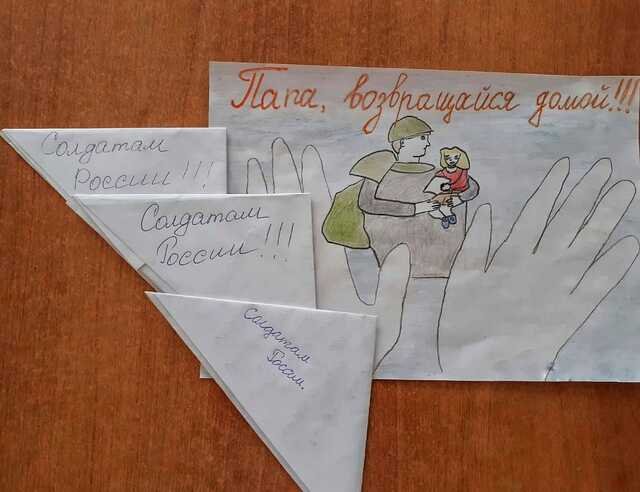 Папа, возвращайся домой!!!
Солдатам
России!!!
Солдатам
России!!!
Солдатам
России.